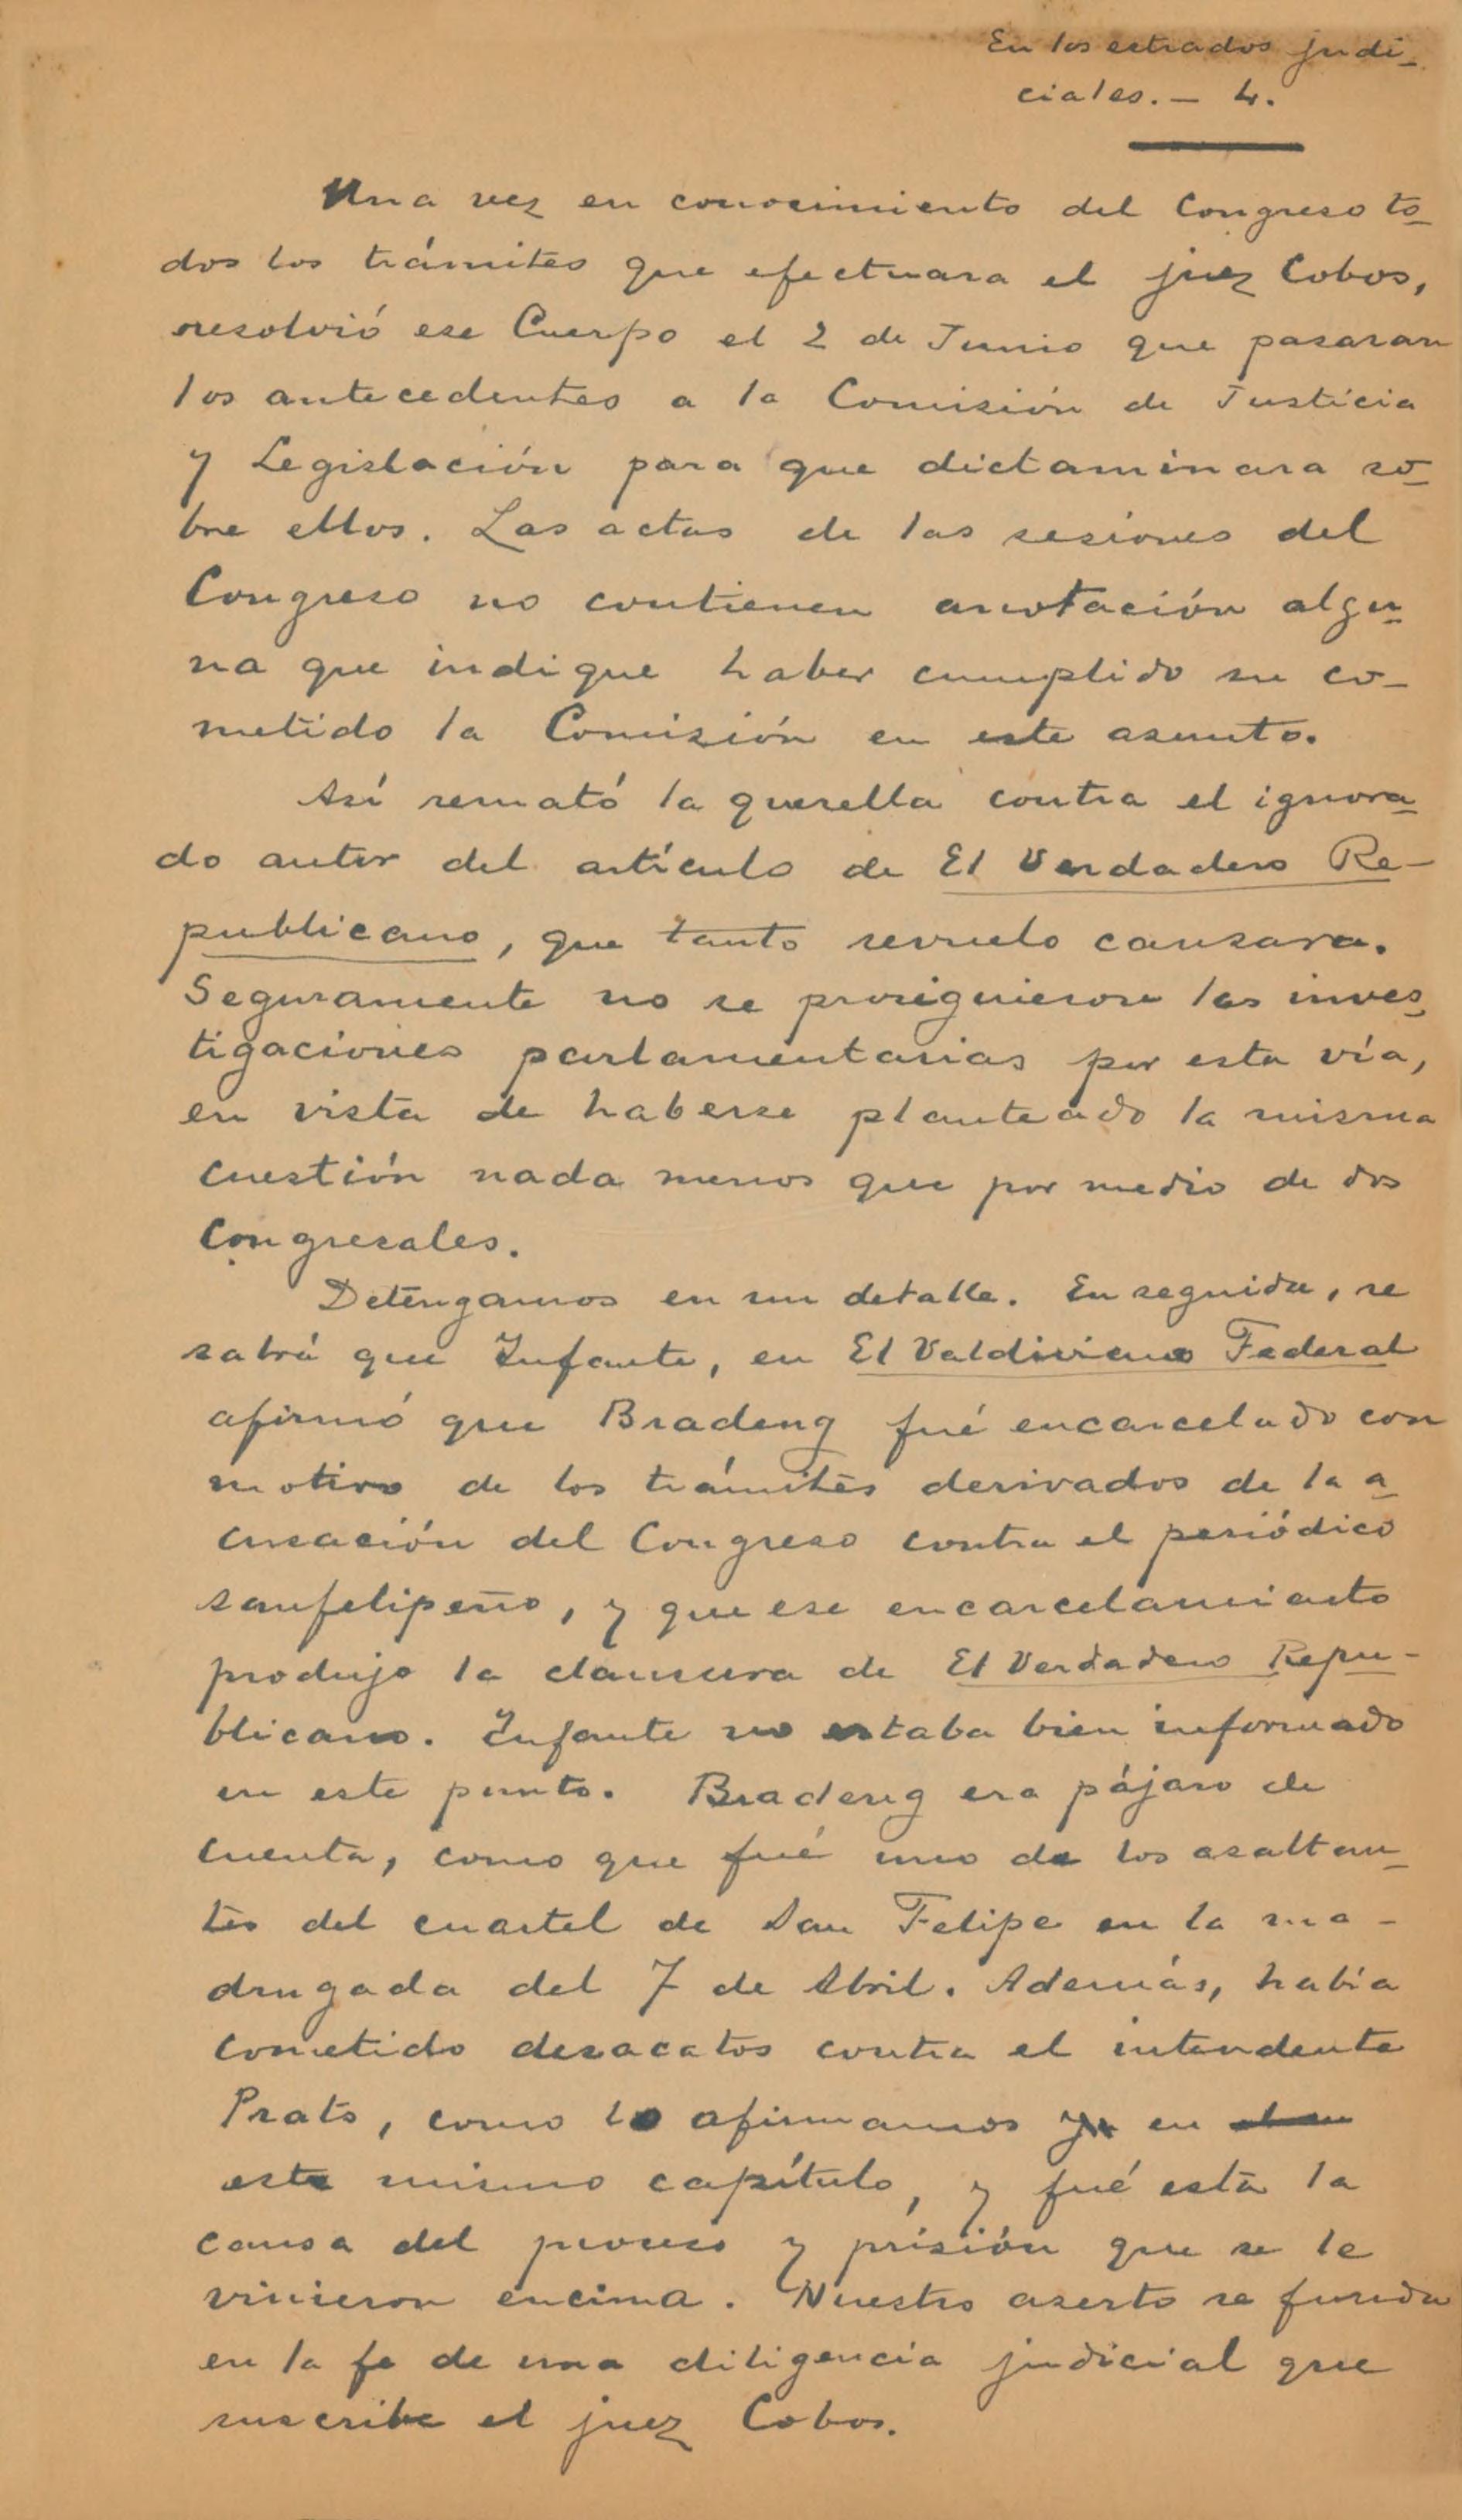 En los estrados judi-
ciales. – 4.
Una vez en conocimiento del Congreso to-
dos los trámites que efectuara el juez Cobos,
resolvió ese Cuerpo el 2 de Junio que pasaran
los antecedentes a la Comisión de Justicia
y Legislación para que dictaminara so-
bre ellos. Las actas de las sesiones del
Congreso no contienen anotación algu-
na que indique haber cumplido su co-
metido la Comisión en este asunto.
Así remató la querella contra el ignora-
do autor del artículo de El Verdadero Re-
publicano, que tanto revuelo causara.
Seguramente no se prosiguieron las inves-
tigaciones parlamentarias por esta vía,
en vista de haberse planteado la misma
cuestión nada menos que por medio de dos
Congresales.
Detengamos en un detalle. En seguida, se
sabrá que Infante, en El Valdiviano Federal
afirmó que Bradeng fué encarcelado con
motivo de los trámites derivados de la a-
cusación del Congreso contra el periódico
sanfelipeño, y que ese encarcelamiento
produjo la clausura de El Verdadero Repu-
blicano. Infante no estaba bien informado
en este punto. Bradeng era pájaro de
cuenta, como que fué uno de los asaltan-
tes del cuartel de San Felipe en la ma-
drugada del 7 de Abril. Además, había
cometido desacatos contra el intendente
Prats, como lo afirmamos ya en
este mismo capítulo, y fué esta la
causa del proceso y prisión que se le
vinieron encima. Nuestro aserto se funda
en la fe de una diligencia judicial que
suscribe el juez Cobos.